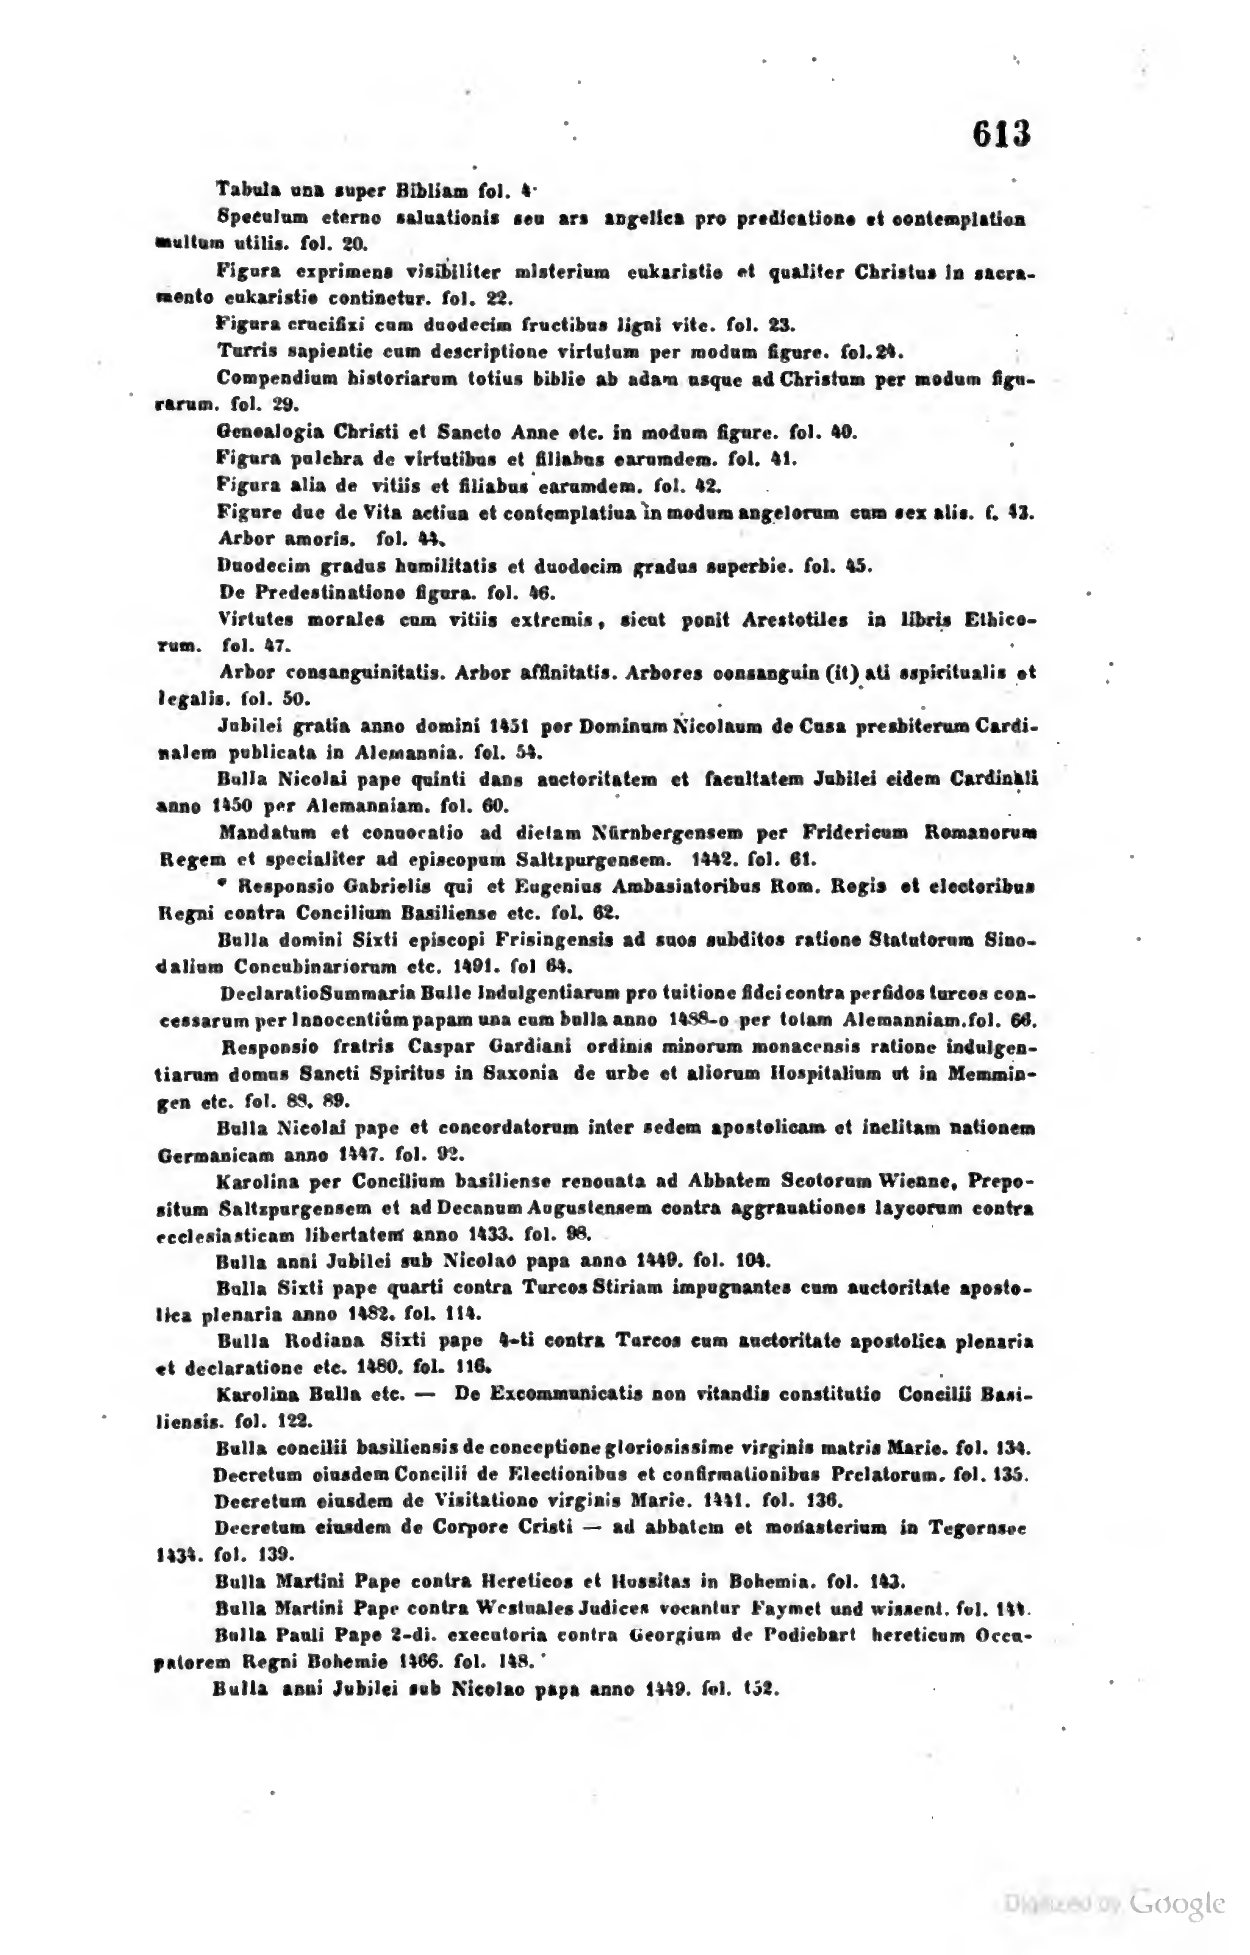 613
Tabula una super Bibliam fol. 4.
Speculum eterne saluationis seu ars angelica pro predicatione et contemplation
multum utilis. fol. 20.
Figura exprimens visibiliter misterium eukaristie et qualiter Christus in sacra-
mento eukaristie continetur. fol. 22.
Figura crucifixi cum duodecim fructibus ligni vite. fol. 23.
Turris sapientie cum descriptione virtutum per modum figure. fol. 24.
Compendium historiarum totius biblie ab adam usque ad Christum per modum figu-
rarum. fol. 29.
Genealogia Christi et Sancte Anne etc. in modum figure. fol. 40.
Figura pulchra de virtutibus et filiabus earumdem. fol. 41.
Figura alia de vitiis et filiabus earumdem. fol. 42.
Figure due de Vita actiua et contemplatiua in modum angelorum cum sex alis. f. 43.
Arbor amoris. fol. 44.
Duodecim gradus humilitatis et duodecim gradus superbie. fol. 45.
De Predestinatione figura. fol. 46.
Virtutes morales cum vitiis extremis, sicut ponit Arestotiles in libris Ethico-
rum. fol. 47.
Arbor consanguinitatis. Arbor affinitatis. Arbores consanguin (it) ati sspiritualis et
legalis. fol. 50.
Jubilei gratia anno domini 1451 per Dominum Nicolaum de Cusa presbiterum Cardi-
nalem publicata in Alemannia. fol. 54.
Bulla Nicolai pape quinti dans auctoritatem et facultatem Jubilei eidem Cardinali
anno 1450 per Alemanniam. fol. 60.
Mandatum et conuocatio ad dietam Nürnbergensem per Fridericum Romanorum
Regem et specialiter ad episcopum Saltzpurgensem. 1442. fol. 61.
* Responsio Gabrielis qui et Eugenius Ambasiatoribus Rom. Regis et electoribus
Regni contra Concilium Basiliense etc. fol. 62.
Bulla domini Sixti episcopi Frisingensis ad suos subditos ratione Statutorum Sino-
dalium Concubinariorum etc. 1491. fol 64.
Declaratio Summaria Bulle Indulgentiarum pro tuitione fidei contra perfidos turcos con-
cessarum per Innocentium papam una cum bulla anno 1488-o per totam Alemanniam. fol. 66.
Responsio fratris Caspar Gardiani ordinis minorum monacensis ratione indulgen-
tiarum domus Sancti Spiritus in Saxonia de urbe et aliorum Hospitalium ut in Memmin-
gen etc. fol. 88. 89.
Bulla Nicolai pape et concordatorum inter sedem apostolicam et inclitam nationem
Germanicam anno 1447. fol. 92.
Karolina per Concilium basiliense renouata ad Abbatem Scotorum Wienne, Prepo-
situm Saltzpurgensem et ad Decanum Augustensem contra aggrauationes laycorum contra
ecclesiasticam libertatem anno 1433. fol. 98.
Bulla anni Jubilei sub Nicolao papa anno 1449. fol. 104.
Bulla Sixti pape quarti contra Turcos Stiriam impugnantes cum auctoritate aposto-
lica plenaria anno 1482. fol. 114.
Bulla Rodiana Sixti pape 4-ti contra Turcos cum auctoritate apostolica plenaria
et declaratione etc. 1480. fol. 116.
Karolina Bulla etc. — De Excommunicatis non vitandis constitutio Concilii Basi-
liensis. fol. 122.
Bulla concilii basiliensis de conceptione gloriosissime virginis matris Marie. fol. 134.
Decretum eiusdem Concilii de Electionibus et confirmationibus Prelatorum. fol. 135.
Decretum eiusdem de Visitatione virginis Marie. 1441. fol. 136.
Decretum eiusdem de Corpore Cristi — ad abbatem et monasterium in Tegernsee
1434. fol. 139.
Bulla Martini Pape contra Hereticos et Hussitas in Bohemia. fol. 143.
Bulla Martini Pape contra Westuales Judices vocantur Faymet und wissent. fol. 144.
Bulla Pauli Pape 2-di. executoria contra Georgium de Podiebart hereticum Occu-
patorem Regni Bohemie 1466. fol. 148.
Bulla anni Jubilei sub Nicolao papa anno 1449. fol. 152.
Digitized by Google